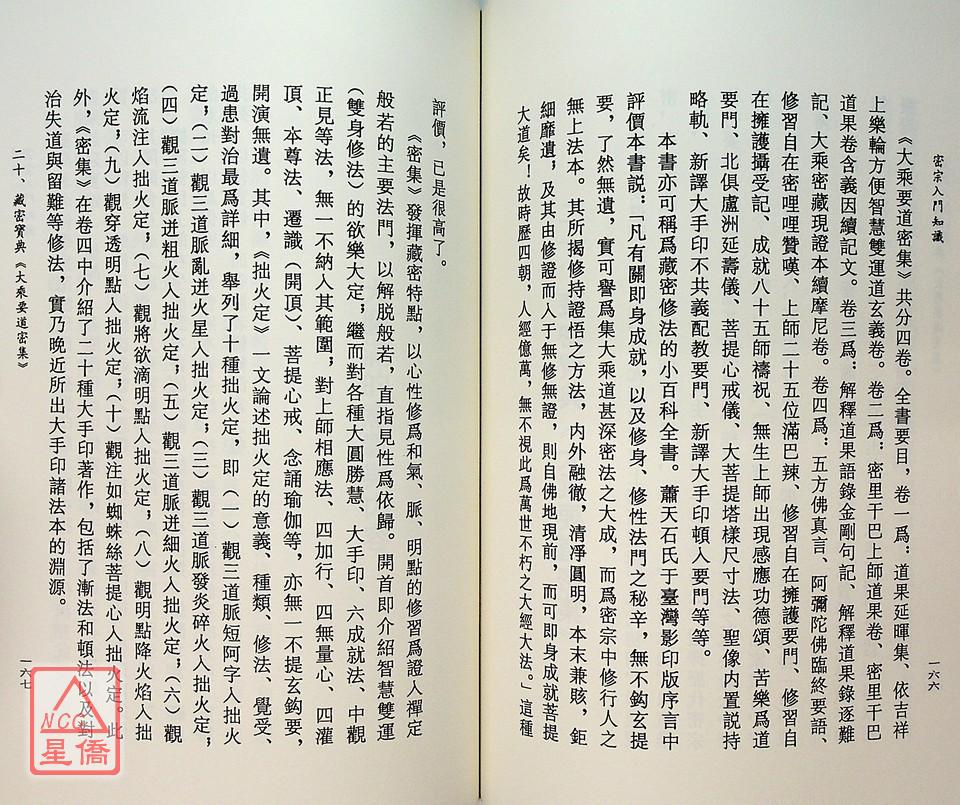 密宗入門知識
《大乘要道密集》共分四卷。全書要目，卷一爲：道果延暉集、依吉祥
上樂輪方便智慧雙運道玄義卷。卷二爲：密里干巴上師道果卷、密里干巴
道果卷含義因續記文。卷三爲：解釋道果語錄金剛句記、解釋道果錄逐難
記、大乘密藏現證本續摩尼卷。卷四爲：五方佛真言、阿彌陀佛臨終要語、
修習自在密哩哩贊嘆、上師二十五位滿巴辣、修習自在擁護要門、修習自
在擁護攝受記、成就八十五師禱祝、無生上師出現感應功德頌、苦樂爲道
要門、北俱盧洲延壽儀、菩提心戒儀、大菩提塔樣尺寸法、聖像内置説持
略軌、新譯大手印不共義配教要門、新譯大手印頓入要門等等。
本書亦可稱爲藏密修法的小百科全書。蕭天石氏于臺灣影印版序言中
評價本書説：「凡有關即身成就，以及修身、修性法門之秘辛，無不鈎玄提
要，了然無遺，實可譽爲集大乘道甚深密法之大成，而爲密宗中修行人之
無上法本。其所揭修持證悟之方法，内外融徹，清凈圓明，本末兼賅，鉅
細靡遺，及其由修證而入于無修無證，則自佛地現前，而可即身成就菩提
大道矣！故時歷四朝，人經億萬，無不視此爲萬世不朽之大經大法。」這種
一六六
評價，已是很高了。
《密集》發揮藏密特點，以心性修爲和氣、脈、明點的修習爲證入禪定
般若的主要法門，以解脱般若，直指見性爲依歸。開首即介紹智慧雙運
(雙身修法)的欲樂大定，繼而對各種大圓勝慧、大手印、六成就法、中觀
正見等法，無一不納入其範圍；對上師相應法、四加行、四無量心、四灌
頂、本尊法、遷識(開頂)、菩提心戒、念誦瑜伽等，亦無一不提玄鈎要，
開演無遺。其中，《拙火定》一文論述拙火定的意義、種類、修法、覺受、
過患對治最爲詳細，舉列了十種拙火定，即(一)觀三道脈短阿字入拙火
定，(二)觀三道脈亂迸火星入拙火定；(三)觀三道脈發炎碎火入拙火定；
(四)觀三道脈迸粗火入拙火定，(五)觀三道脈迸細火入拙火定；(六)觀
焰流注入拙火定，(七)觀將欲滴明點入拙火定，(八)觀明點降火焰入拙
火定，(九)觀穿透明點入拙火定，(十)觀注如蜘蛛絲菩提心入拙火定。此
外，《密集》在卷四中介紹了二十種大手印著作，包括了漸法和頓法以及對
治失道與留難等修法，實乃晚近所出大手印諸法本的淵源。
二十、藏密寶典《大乘要道密集》
一六七
NCC
星僑